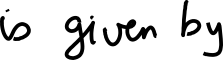 is given by